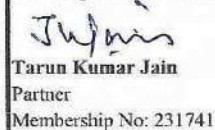 Tarun Kumar Jain
Partner
Membership No: 231741